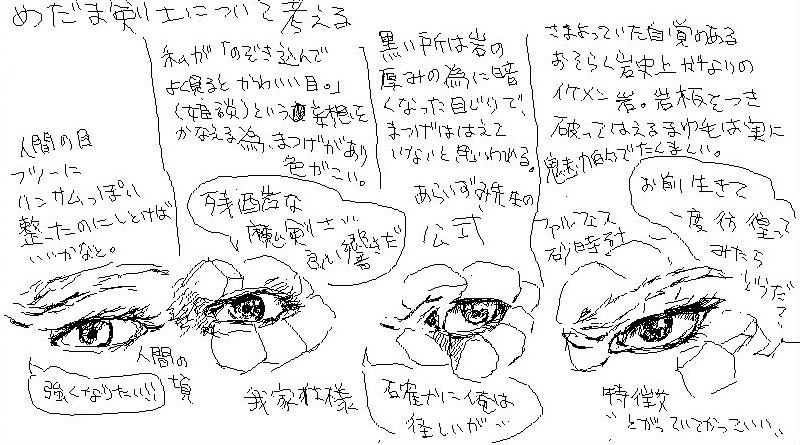 めだま剣士について考える
人間の目
フツーに
ハンサムっぽい
整ったのにしとけば
いいかなと。
強くなりたい!!
人間の
頃
私が「のぞき込んで
よく見ると かわいい目。」
(姫談)という
かなえる為、まつげがあり
色がこい。
残酷岩な
魔剣士…
良い響きだ
我家仕様
黒い所は岩の
厚みの為に暗
くなった目じりで、
まつげははえて
いないと思いわれる。
あらいずみ先生の
公式
確かに俺は
怪しいが…
さまよっていた自覚のある
おそらく岩史上かなりの
イケメン岩。岩板をつき
破ってはえるまゆ毛は実に
魅力的でたくましい。
ファルフェス
砂時計
お前 生きて
一度彷徨って
みたら
どうだ?
特徴
"とがっていてかっていい"